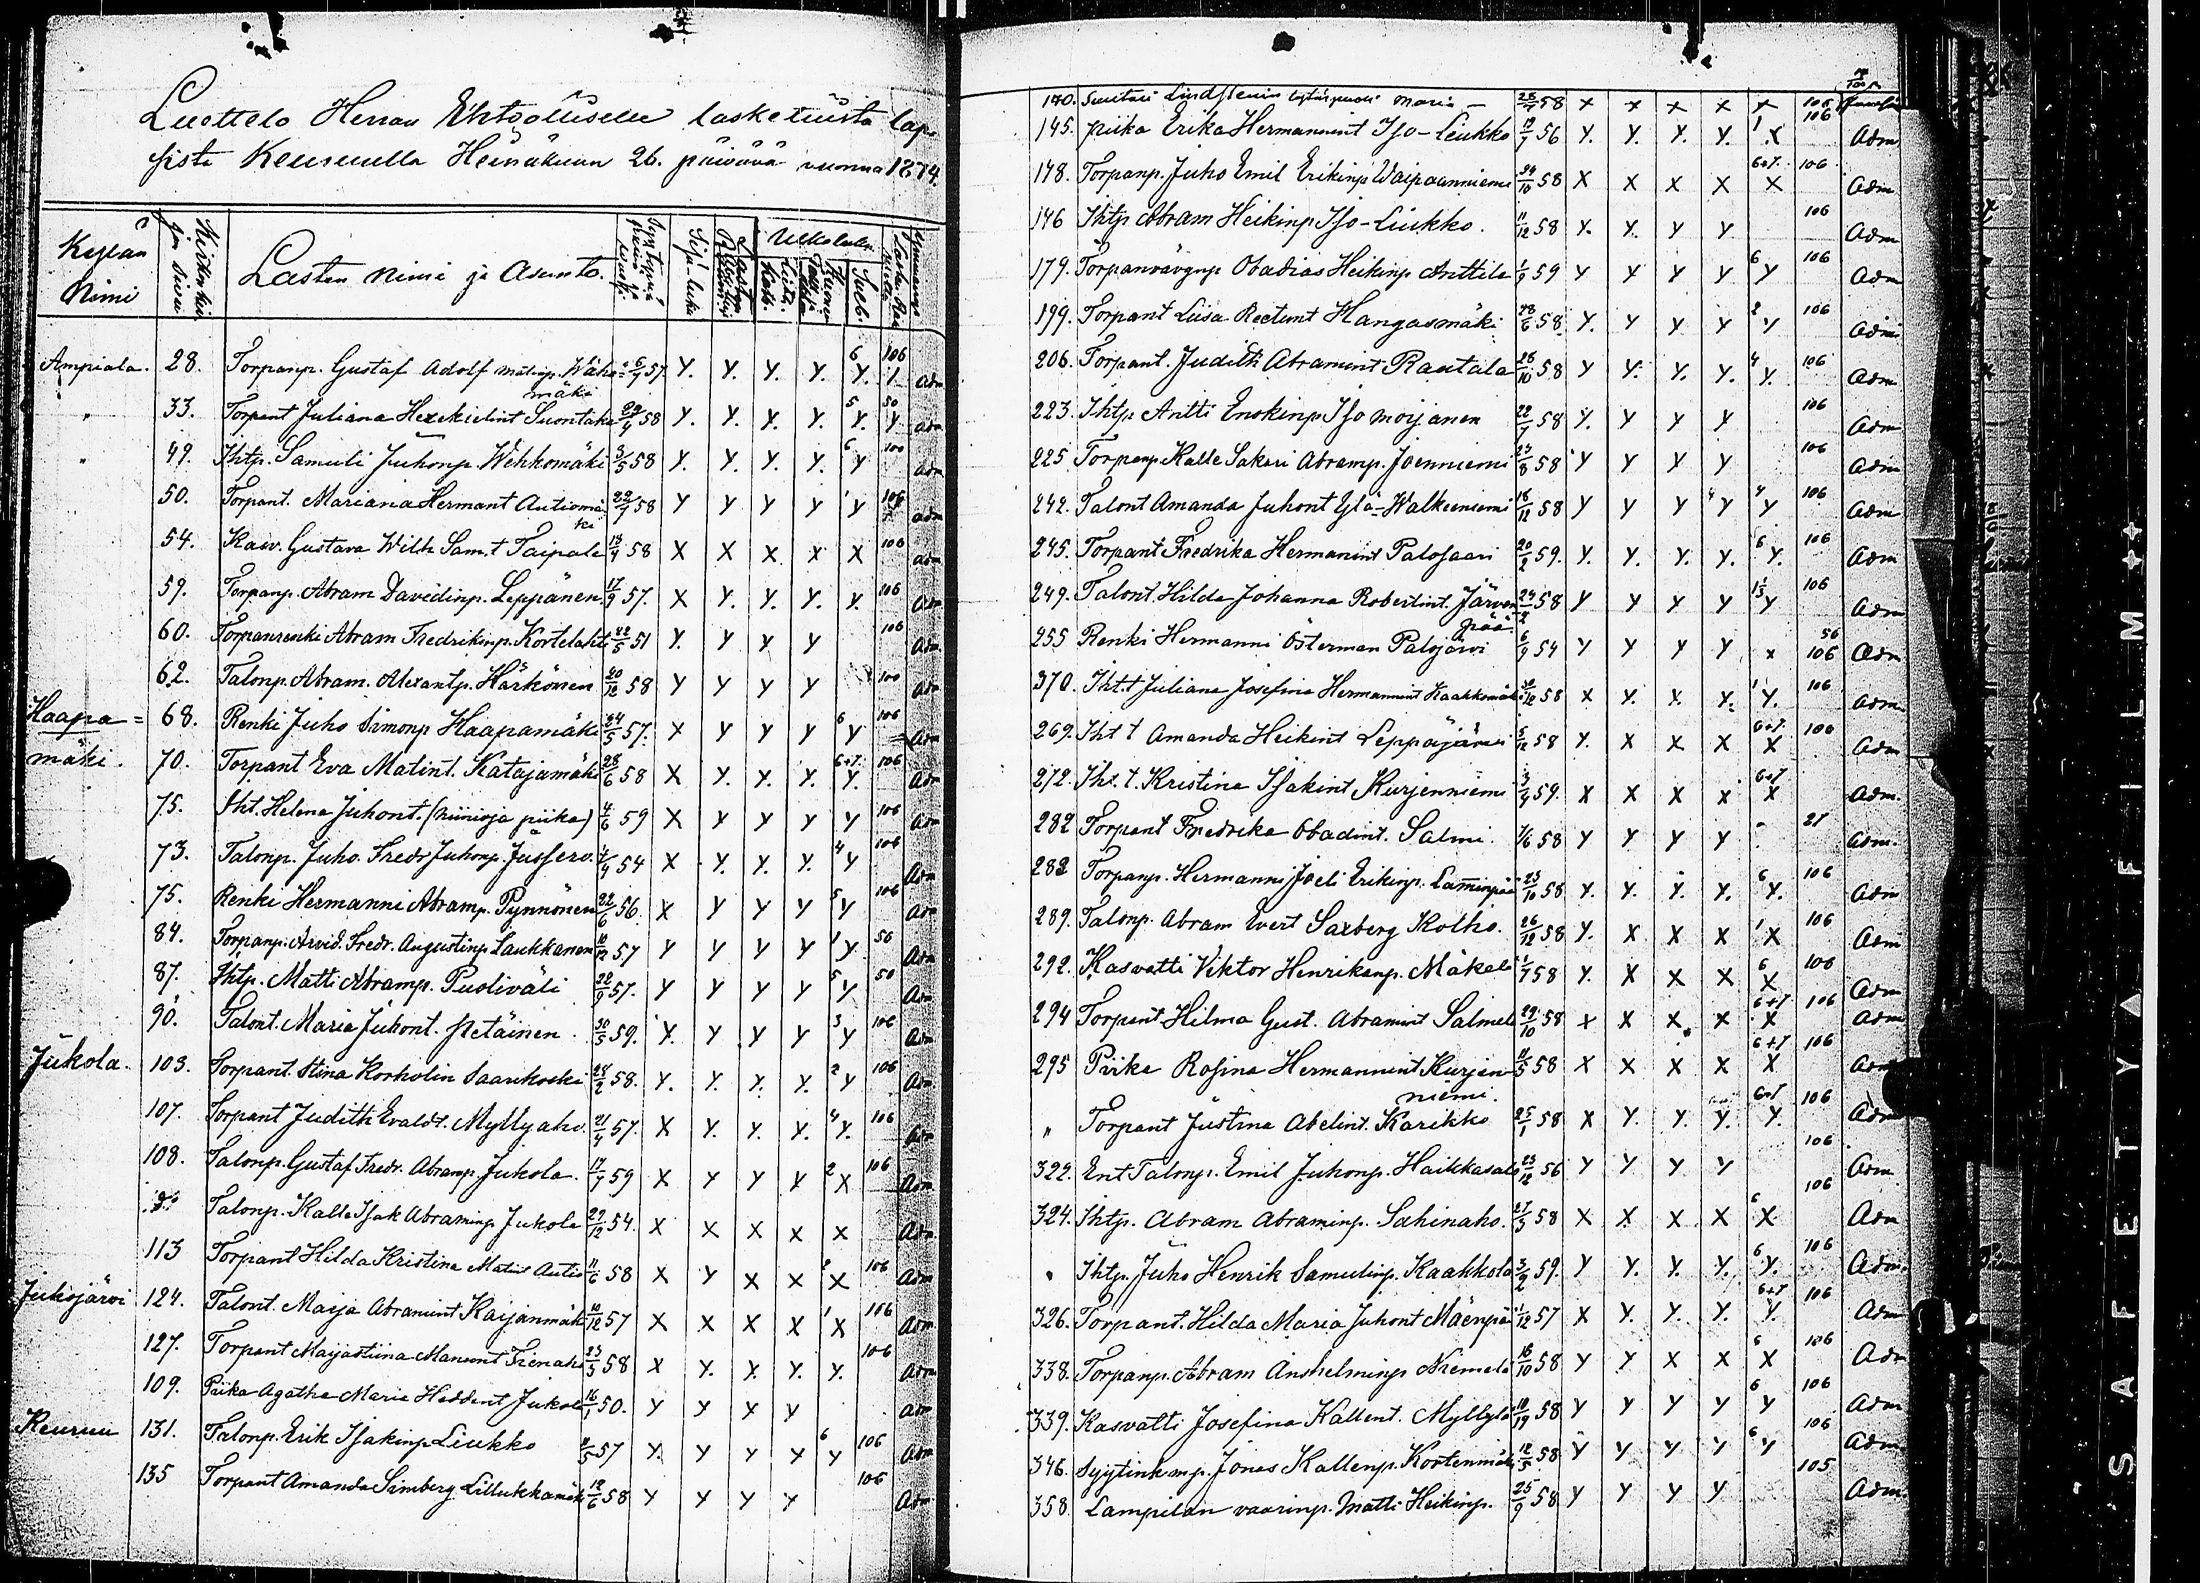 Luettelo Herran Ehtoolliselle lasketuista lap-
sista Keuruulla Heinäkuun 26. päivänä vuonna 1874.
Kylän Nimi Kirkonkir. ja sivu Lasten nimi ja Asunto. Sisä luku Ulkoluku
Ampiala. 28. Torpanp. Gustaf Adolf Matinp. Wäha= 57. Y. Y. Y. Y. 6 Y. 106 Adm
mäki
" 33. Torpant Juliana Hezekielint Suontaka 58 Y. Y. Y. Y. 5 Y. 50 Adm
" 49. Ihtp. Samuli Juhonp. Wehkomäki 3/5 58 Y. Y. Y. Y. 6 Y 100 Adm
50. Torpant. Mariana Hermant Autiomä 22/7 58 Y Y Y Y Y 106 Adm
ki
54. Kasv. Gustava Wilh. Sam.t Taipale 58 X X X X X 106 Adm
59. Torpanp. Abram Davidinp. Leppänen 17/9 57. X Y. Y. Y. Y. 106 Adm
60. Torpanrenki Abram Fredrikinp. Kortelahti 51 Y. Y Y Y 106 Adm
62. Talonp. Abram. Alexantp. Härkönen 20/12 58 Y Y Y Y 100 Adm
Haapa= 68. Renki Juho Simonp Haapamäki 24/5 57. X Y Y Y 6 Y 106 Adm
mäki. 70. Torpant Eva Matint. Katajamäki 28/6 58 X Y. Y. Y. 6+7. Y. 106 Adm
75. Iht. Helena Juhont. (Niinioja piika) 4/6 59 X Y Y Y Y 106 Adm
73. Talonp. Juho. Fredr Juhonp. 54 X Y. Y. Y. 4 Y 106 Adm
75. Renki Hermanni Abramp. Pynnönen 22/6 56. X Y Y Y 5 Y 106 Adm
84. Torpanp. Arvid. Fredr. Augustinp Laukkanen 57 Y Y Y Y 1 Y. 50 Adm
87. Ihtp. Matti Abramp. Puoliväli 22/9 57. Y Y Y Y 5 Y 50 Adm
90. Talont. Maria Juhont. Petäinen. 30/5 59. Y. Y Y Y 3 Y 106 Adm
Jukola. 103. Torpant. Stina Korholin Saarikoski 28/2 58. Y. Y. Y. Y. 2 Y 106 Adm
107. Torpant Judith Evaldt. Myllyaho. 21/4 57. X Y. Y. Y. 4 Y. 106 Adm
108. Talonp. Gustaf Fredr. Abramp. Jukola. 59 X Y Y Y 2 X 106 Adm
Talonp. Kalle Isak Abraminp Jukola 29/12 54. X X X X X Adm.
113 Torpant Hilda Kristina Matint Autio 11/6 58 X Y X X 2 X 106 Adm
Jukojärvi 124. Talont. Maija Abramint Kaijanmäki 10/12 57 X X X X 1 X 106 Adm
127. Torpant Maijastiina 23/3 58 X Y. Y. Y. Y. 106 Adm
109. Piika Agatha Maria Jukola 16/1 50. Y Y X Y Adm
Keuruu 131. Talonp. Erik Isakinp Liukko 57 Y. Y Y Y 6 Y 106 Adm
135 Torpant Amanda Simberg Lillukkamäki 12/6 58 Y Y Y Y 106 Adm
140. Suutari Lindstenin Maria - 58 X X X X X 106
145. piika Erika Hermannint Iso-Liukko 56 Y. Y. Y. Y. 1 X 106 Adm
148. Torpanp. Juho Emil Erikinp Waipaanniemi 24/10 58 X X X X 6+7. X 106 Adm
146 Ihtp Abram Heikinp Iso-Liukko. 11/12 58 Y. Y. Y Y 106 Adm
179. Torpanvävynp Obadias Heikinp Anttila 1/9 59 Y Y Y Y 6 Y 106 Adm
199. Torpant Liisa Hangasmäki 28/6 58. Y. Y Y Y 2 Y 106 Adm
206. Torpant. Judith Abramint Rautala 26/10 58 Y Y. Y. Y. 4 Y. 106 Adm
223. Ihtp Antti Enokinp Iso Moijanen 22/7 58 Y. Y Y Y 106 Adm
225 Torpanp. Kalle Sakari Abramp. Joenniemi 23/8 58 Y Y Y Y 106 Adm
242. Talont Amanda Juhont Ylä-Walkeeniemi 16/12 58 Y Y Y 4 Y 4 Y 106 Adm
245. Torpant Fredrika Hermanint Palosaari 20/2 59. Y. Y. Y. Y. 6 Y. 106 Adm
249. Talont. Hilda Johanna Robertint. Järven 58 Y Y Y Y Y 106 Adm
pää.
255 Renki Hermanni Österman Palojärvi 6/9 54 Y Y Y Y X 56 106 Adm
370. Iht.t Juliana Josefina Hermannint Kaakkomäki 58 X Y. X. Y. 1 Y. 106 Adm.
269. Iht t Amanda Heikint Leppäjärvi 5/12 58 Y. X X X 6+7 X 100 Adm
272. Iht. t. Kristina Isakint Kurjenniemi 3/4 59. X X X X 6+7 X Adm.
282 Torpant Fredrika Obadint. Salmi. 7/6 58 Y Y Y Y 21 Adm.
282 Torpanp. Hermanni Joeli Erikinp. 23/10 58 Y. Y. Y. Y. 6 Y. 106 Adm
289. Talonp. Abram Evert Saxberg Kolho. 26/12 58 Y. X X X 1 X 106 Adm
292. Kasvatti Viktor Henrikinp. Mäkelä 1/7 58 Y. X X X 6 X 106 Adm
294 Torpant Hilma Gust. Abramint Salmela 29/10 58 X X X. X 6+7 X 106 Adm
295 Piika Rosina Hermannint Kurjen= 58 X X X X 6+7 X 106 Adm
niemi.
" Torpant Justina Abelint. Karikko 25/1 58 X Y. Y. Y. 6+7 Y. 106 Adm
322. Ent Talonp. Emil Juhonp. Haikkasalo 23/12 56 Y Y Y Y 106 Adm
324. Ihtp. Abram Abraminp. Sahinaho. 27/3 58 X X X X 6 X 106 Adm
" Ihtp. Juho Henrik Samulinp. Kaakkola 3/2 59. Y Y. Y. Y. 6 Y. 106 Adm.
326. Torpant. Hilda Maria Juhont Mäenpää 1/12 57 X Y. Y. Y. 6+7 Y. 106 Adm
338. Torpanp. Abram Anshelminp Niemelä 16/10 58 Y Y X X 6 X 106 Adm
339. Kasvatti Josefina Kallent. Myllylä 58 Y Y Y Y 6 Y 106 Adm
346. Syytinkm.p. Jonas Kallenp. Kortenmäki 12/5 58 Y Y Y Y 6 Y 106 Adm
358. Lampilan vaarinp. Matti Heikinp. 25/9 58 Y Y Y Y 105 Adm
SAFETY FILM